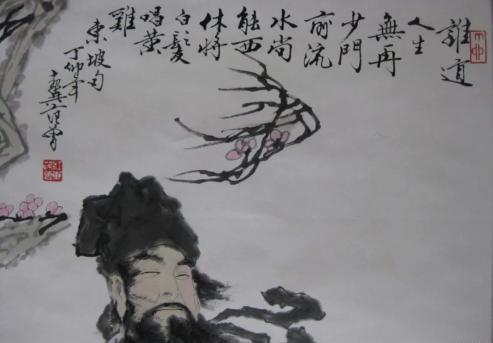 誰道
人生
無再
少門
前流
水尚
能西
休將
白髮
唱黄
雞
東坡句
丁卯年